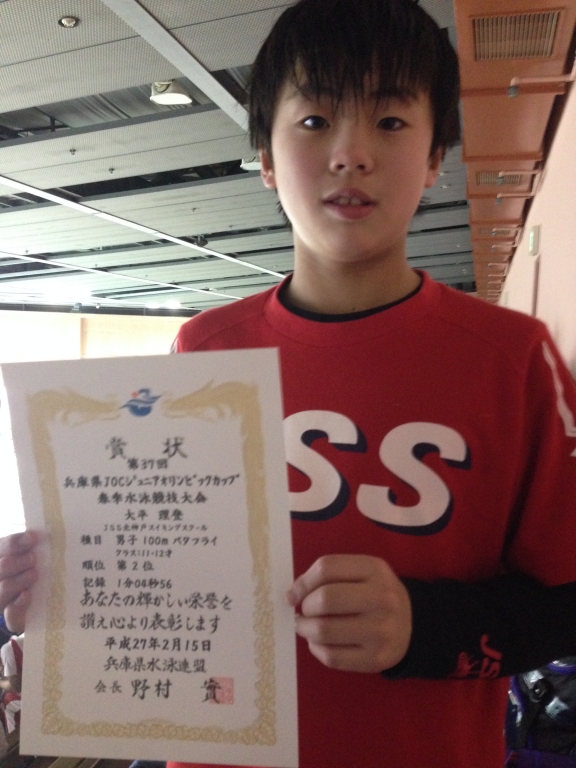 賞状
第37回
兵庫県JOCジュニアオリンピックカップ
春季水泳競技大会
大平 理登
JSS北神戸スイミングスクール
種目 男子 100m バタフライ
クラス:11-12才
順位 第2位
記録 1分04秒56
あなたの輝かしい栄誉を
讃え心より表彰します
平成27年2月15日
兵庫県水泳連盟
会長 野村 實
SS